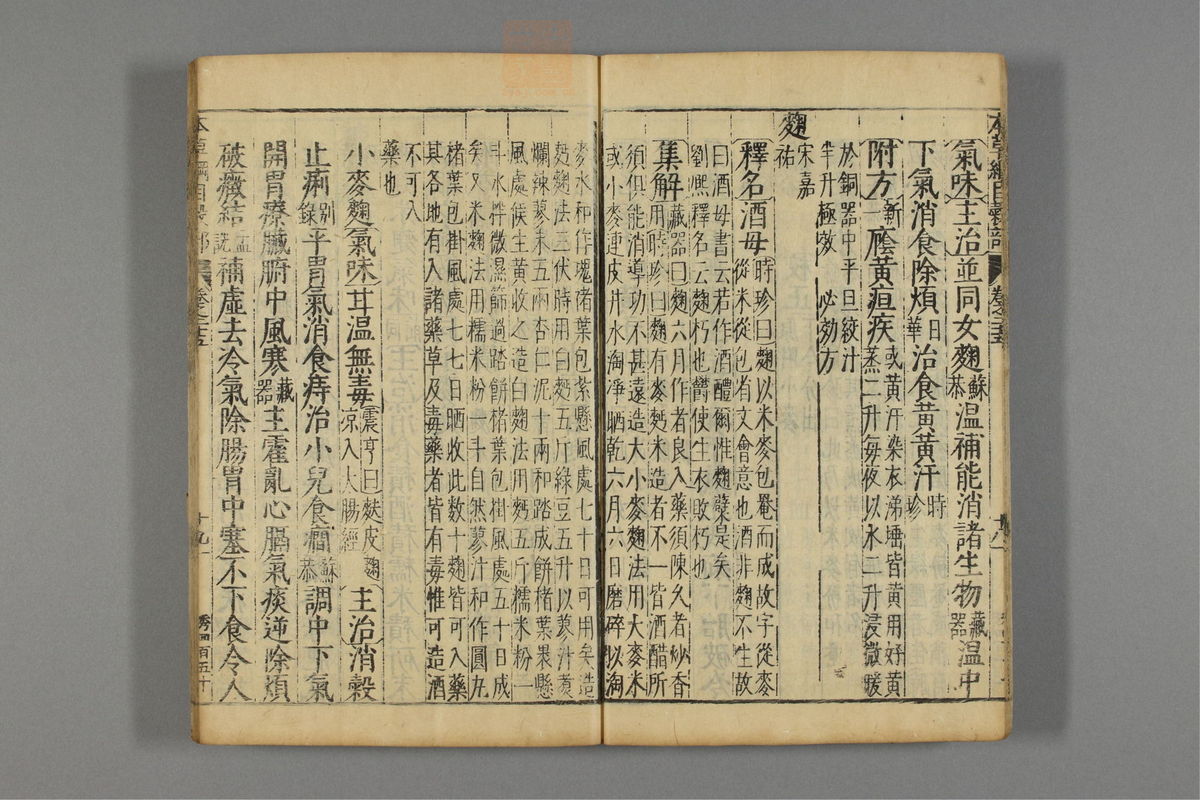 氣味主治並同女麴蘇恭溫補能消諸生物藏器溫中
下氣消食除煩日華治食黃黃汗時珍
附方新一陰黃疸疾或黃汗染衣涕唾皆黃用好黃
蒸二升每夜以水二升浸微暖
於銅器中平旦絞汁
半升極效 必効方
麴宋嘉祐
釋名酒母時珍曰麴以米麥包罨而成故字從麥
從米從包省文會意也酒非麴不生故
曰酒母書云若作酒醴爾惟麴糵是矣
劉熙釋名云麴朽也鬱使生衣敗朽也
集解藏器曰麴六月作者良入藥須陳久者炒香
用時珍曰麴有麥麪米造者不一皆酒醋所
須俱能消導功不甚遠造大小麥麴法用大麥米
或小麥連皮井水淘淨晒乾六月六日磨碎以淘
麥水和作塊楮葉包紮懸風處七十日可用矣造
麪麴法三伏時用白麪五斤綠豆五升以蓼汁煮
爛辣蓼末五兩杏仁泥十兩和踏成餅楮葉裹懸
風處候生黃收之造白麴法用麪五斤糯米粉一
斗水拌微濕篩過踏餅楮葉包掛風處五十日成
矣又米麴法用糯米粉一斗自然蓼汁和作圓丸
楮葉包掛風處七七日晒收此數十麴皆可入藥
其各地有入諸藥草及毒藥者皆有毒惟可造酒
不可入
藥也
小麥麴氣味甘溫無毒震亨曰麩皮麴凉入大腸經主治消穀
止痢別錄平胃氣消食痔治小兒食癇蘇恭調中下氣
開胃療臟腑中風寒藏器主霍亂心膈氣痰逆除煩
破癥結孟詵補虛去冷氣除腸胃中塞不下食令人
十九